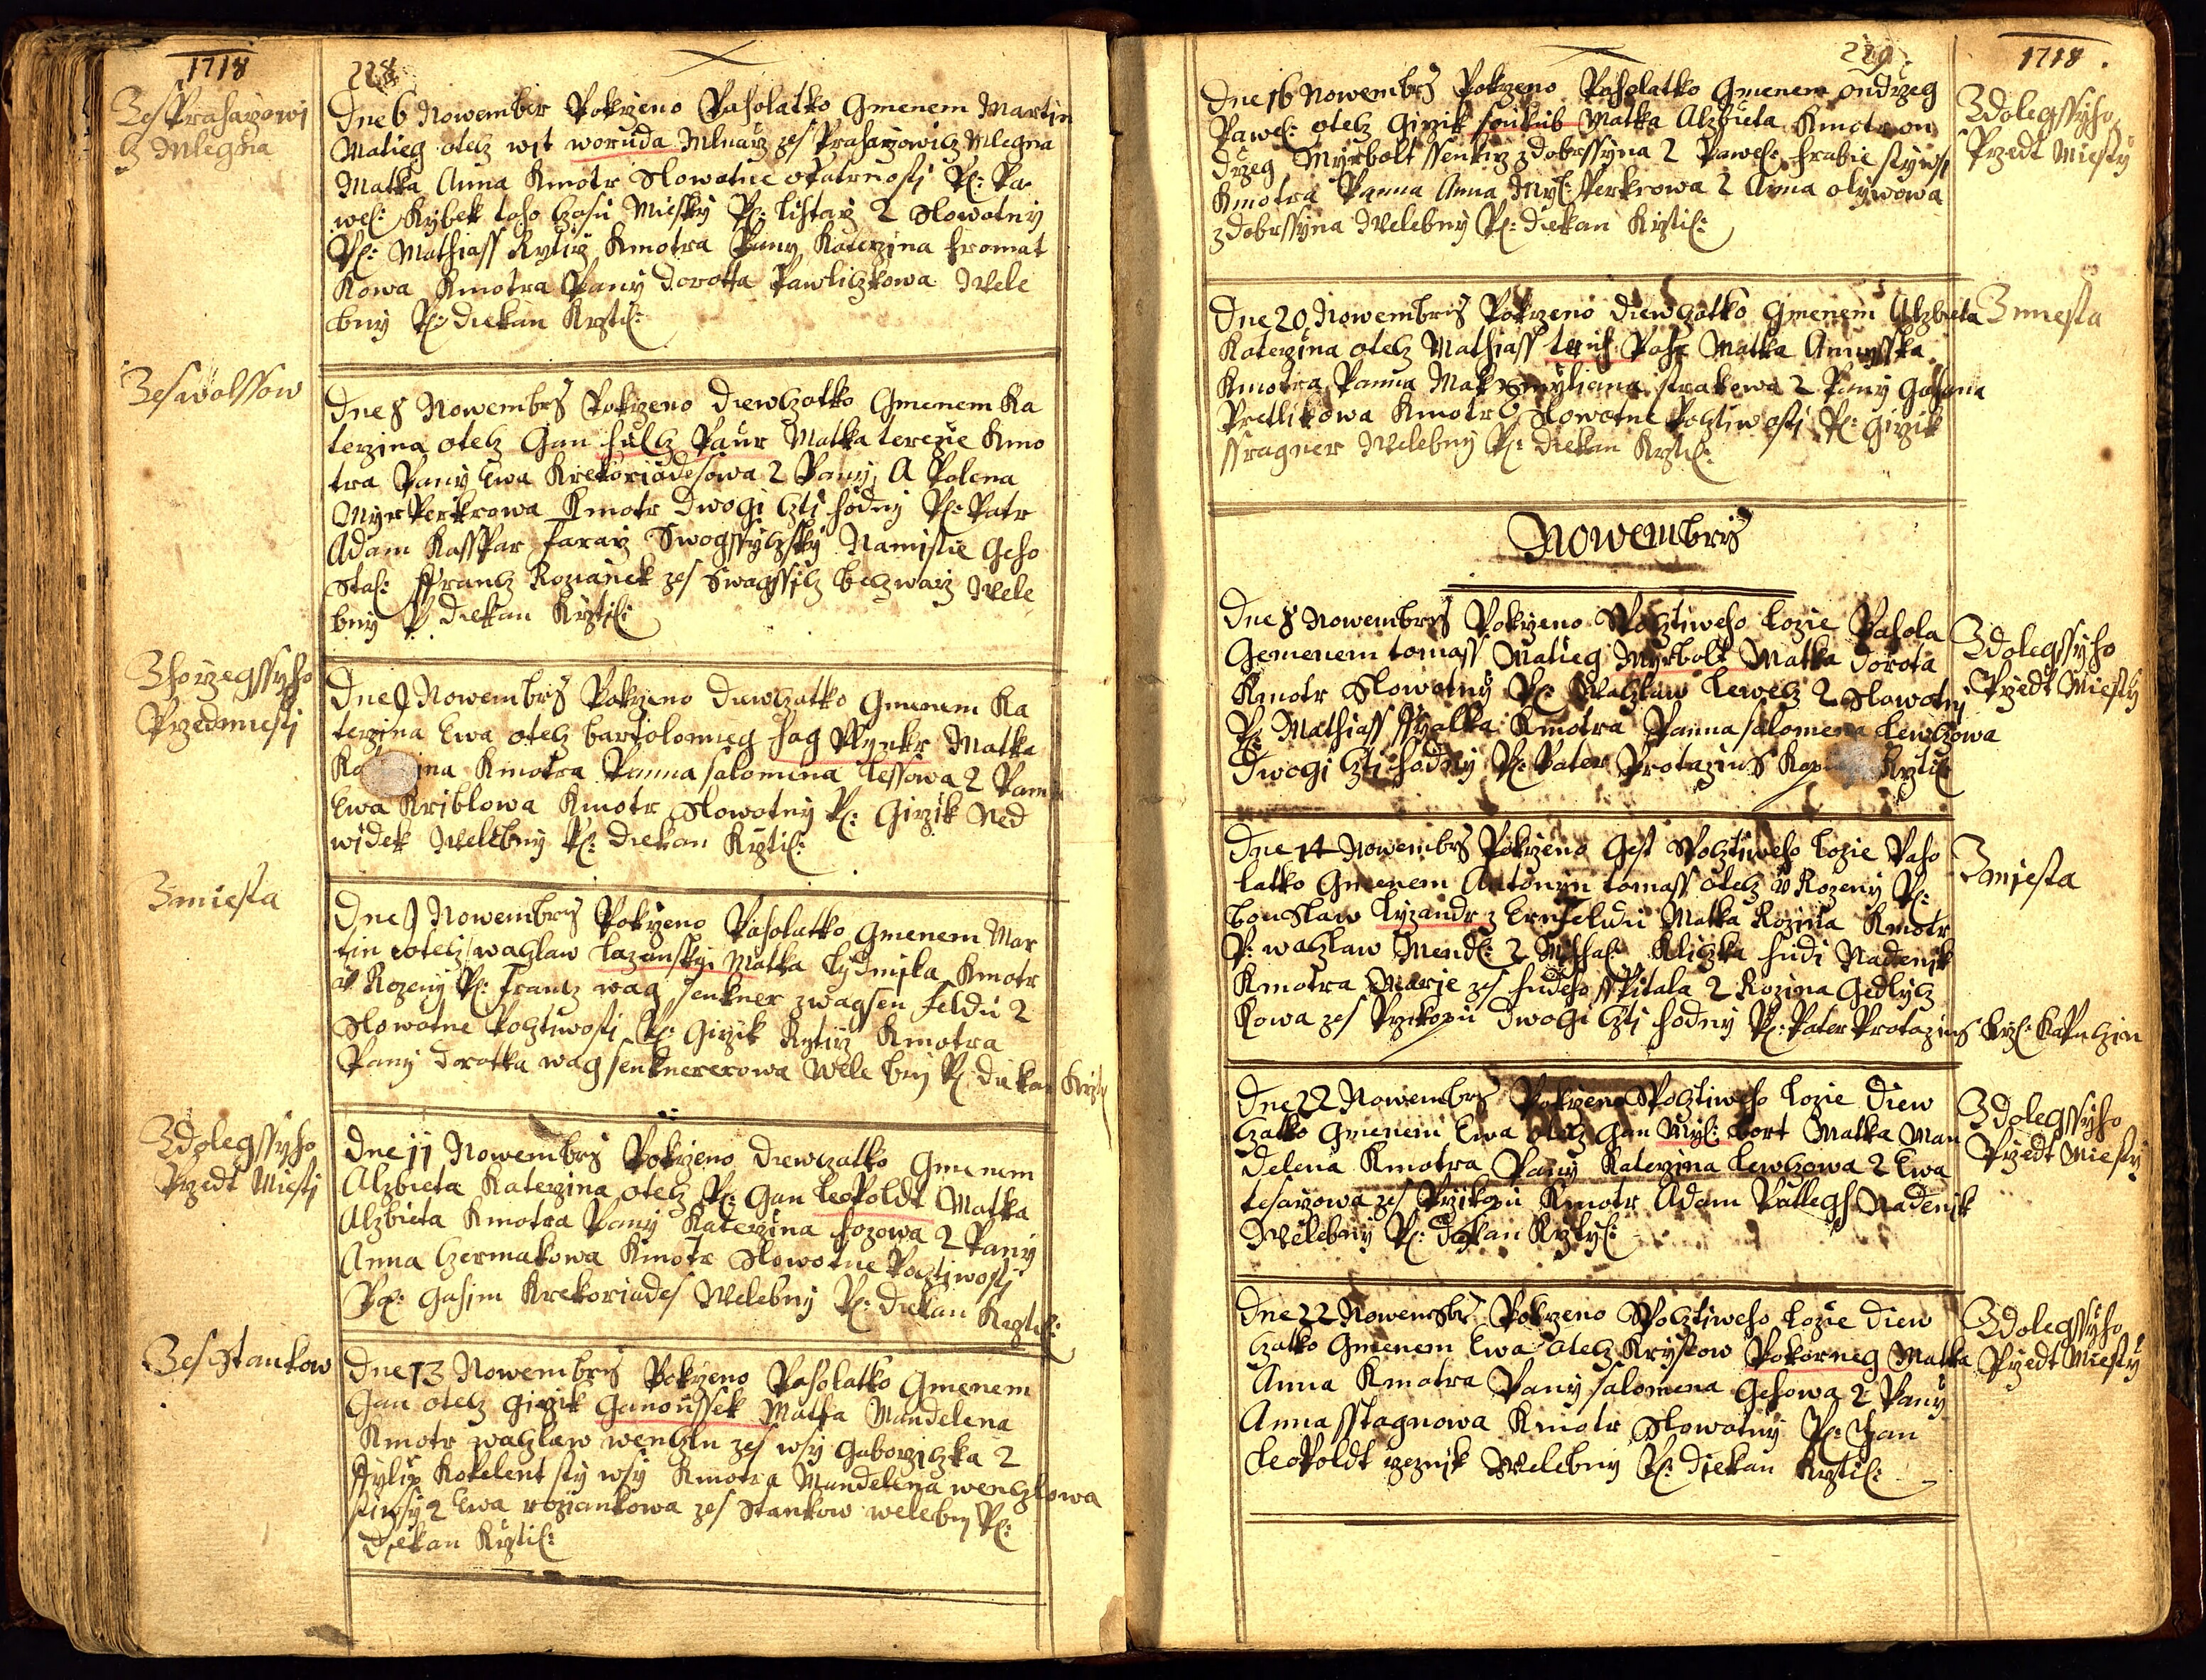 1718
228
Zes Praharzowi
cz Mlegna
Dne 6 November Pokrzeno Paholatko Gmenem Martin
Matieg otecz wit woruda Mlnarz zes Praharzowicz Mlegna
Matka Anna Kmotr Slowutne opatrnosti P: Pa
wel: Rybek toho czasu Miesky P: listarz 2 Slowotny
P: Mathiass Rytirz Kmotra Pany Katerzina hromat
Kowa Kmotra Pany dorotta Pawliczkowa Wele
bny P: diekan Krztil:
Zes wolssow
Dne 8 Novembris Pokrzeno diewczatko Gmenem Ka
terzina otecz Gan hulcz Paur Matka terezie Kmo
tra Pany Ewa Krekoriadesowa 2 Pany A Polena
Myr Perkrowa Kmotr dwogi czti hodny P: Patr
Adam Kasspar fararz Swogssyczky Namistie Geho
Stal: ffrantz Rozianek zes Swagssicz beczwarz Wele
bny P diekan Krztil:
Zhorzegssyho
Przedmiesti
Dne 9 Nowembris Pokrzeno diewczatko Gmenem Ka
terzina Ewa otecz bartolomieg hag Matka
Kmotra Panna salomena lessowa 2 Pani
Ewa Kriblowa Kmotr Slowotny P: Girzik Ned
widek Welebny P: diekan Krztil:
Zmiesta
Dne 9 Nowembris Pokrzeno Paholatko Gmenem Mar
tin otecz waczlaw lazansky Matka Lydmila Kmotr
v Rozeny P: Frantz wag senkner z wagsen feldu 2
Slowotne Pocztiwosti P: Girzik Rytirz Kmotra
Pany dorotka wagsenknererowa Wele bny P: diekan Krztil
Zdolegssyho
Przedt Miesti
Dne 11 Nowembris Pokrzeno diewczatko Gmenem
Alzbieta Katerzina otecz P: Gan leopoldt Matka
Alzbieta Kmotra Pany Katerzina hozowa 2 Pany
Anna Czermakowa Kmotr Slowotne Pocztiwosti
P: Gahim Krekoriades Welebny P: diekan Krztil:
Zes Stankow
Dne 13 Nowembris Pokrzeno Paholatko Gmenem
Gan otecz Girzik Ganoussek Matka Mandelena
Kmotr waczlaw wenczln zes wsy Gaborziczka 2
ffylip Kokelent sty wsy Kmotra Mandelena wenczlowa
sty wsy 2 Ewa roziankowa zes Stankow welebny P:
diekan Krztil:
229
1718.
Dne 16 Nowembris Pokrzeno Paholatko Gmenem ondrzeg
Pawel: otecz Girzik Matka Alzbieta Kmotr on
drzeg Myrbolt ssenkirz z dobrssyna 2 Pawel: hrabie sty wsi
Kmotra Panna Anna Myl: Perkrowa 2 Anna olywowa
z dobrssyna Welebny P: diekan Krztil:
Zdolegssyho
Przedt Miesty
Dne 20 Nowembris Pokrzeno diewczatko Gmenem Alzbieta
Katerzina otecz Mathiass Matka Annusska
Kmotra Panna Maksmyliana strakowa 2 Pany Gohana
Pretlikowa Kmotr Slowotne Pocztiwosti P: Girzik
ssragner Welebny P: diekan Krztil:
Zmiesta
Nowembris
Dne 8 Nowembris Pokrzeno Spocztiweho lozie Pahola
Gemenem tomass Matieg Myrbolt Matka dorota
Kmotr Slowotny P: Waczlaw lewecz 2 Slowotny
P: Mathiass ffyalka Kmotra Panna salomena lewczowa
Dwogi czti hodny P: Pater Protazius Krztil
Zdolegssyho
Przedt Miesty
Dne 14 Nowembris Pokrzeno Gest Spocztiweho lozie Paho
latko Gmenem Antonyn tomass otecz v Rozeny P:
bouslaw lyzandr z Ernfeldu Matka Rozina Kmotr
P: waczlaw Mendl: 2 Michal: Kliczka hudi Nadenik
Kmotra Marie zes hudeho Sspitala 2 Rozina Gedlycz
kowa zes Przikopu dwogi czti hodny P: Pater Protazius Krzl: Kapuczin
Zmiesta
Dne 22 Nowembris Pokrzeno Spocztiweho lozie diew
czatko Gmenem Ewa otecz Gan Myl: bort Matka Man
delena Kmotra Pany Katerzina lewczowa 2 Ewa
tesarzowa zes Przikopu Kmotr Adam Pallegs Nadenik
Welebny P: diekan Krztyl:
Zdolegssyho
Przedt Miesty
Dne 22 Nowembris Pokrzeno Spocztiweho lozie diew
czatko Gmenem Ewa otecz Krystow Pokorneg Matka
Anna Kmotra Pany salomena Gehowa 2 Pany
Anna sstagnowa Kmotr Slowotny P: Gan
leopoldt rzeznik Welebny P: diekan Krztil:
Zdolegssyho
Przedt Miesty